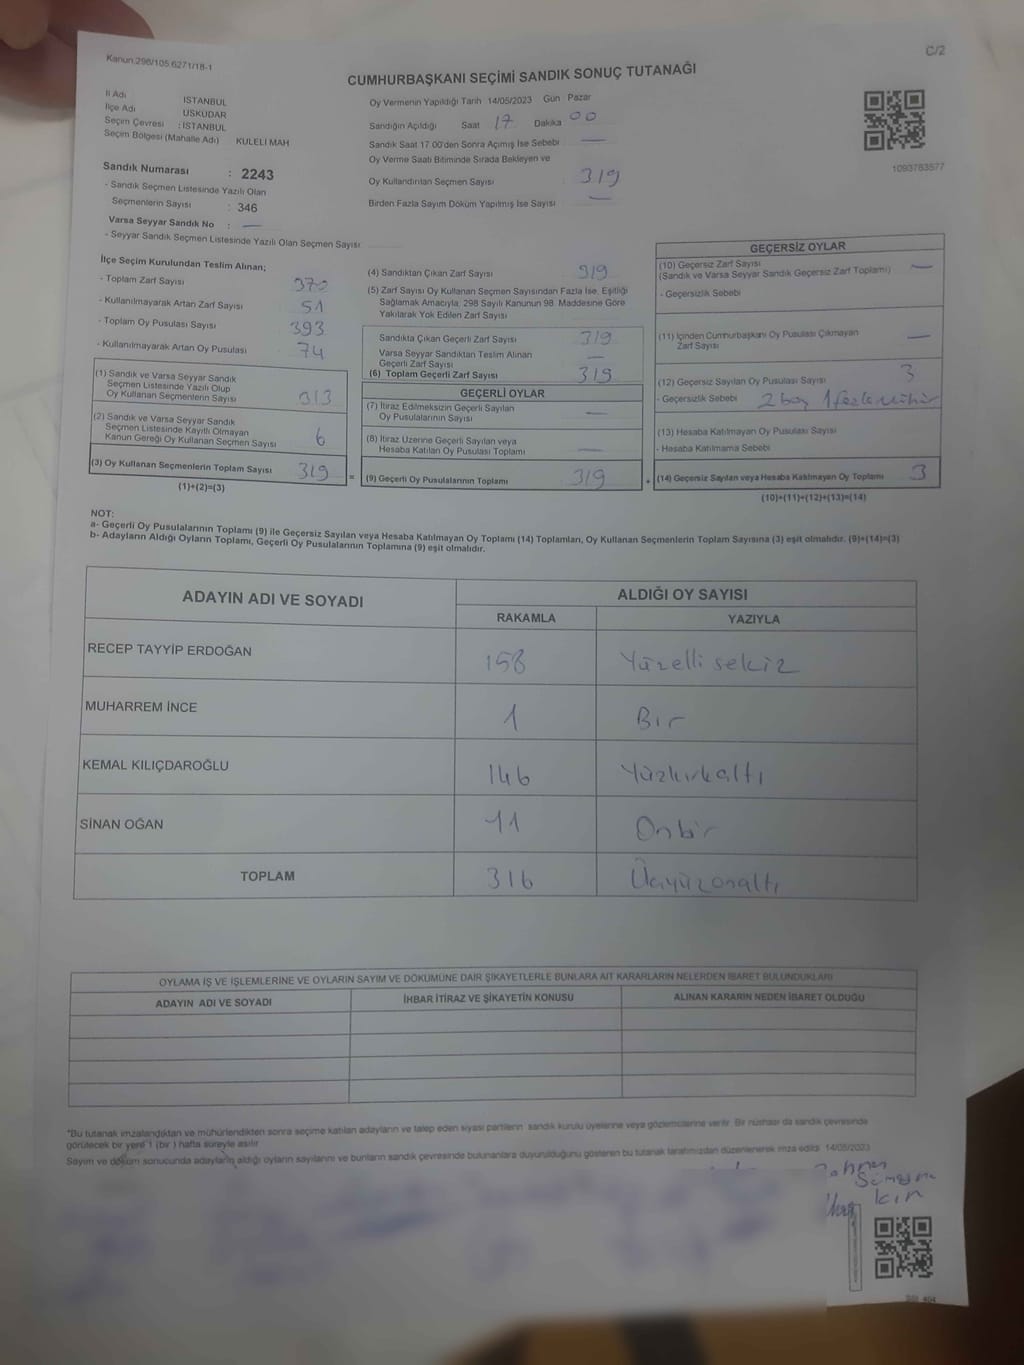 Kanun.298/105.6271/18-1
C/2
CUMHURBAŞKANI SEÇİMİ SANDIK SONUÇ TUTANAĞI
İl Adı İSTANBUL
İlçe Adı ÜSKÜDAR
Seçim Çevresi : İSTANBUL
Seçim Bölgesi (Mahalle Adı) KULELİ MAH
Sandık Numarası : 2243
- Sandık Seçmen Listesinde Yazılı Olan
Seçmenlerin Sayısı : 346
Varsa Seyyar Sandık No : —
- Seyyar Sandık Seçmen Listesinde Yazılı Olan Seçmen Sayısı
Oy Vermenin Yapıldığı Tarih 14/05/2023 Gün Pazar
Sandığın Açıldığı Saat 17 Dakika 00
Sandık Saat 17.00'den Sonra Açılmış İse Sebebi —
Oy Verme Saati Bitiminde Sırada Bekleyen ve
Oy Kullandırılan Seçmen Sayısı : 319
Birden Fazla Sayım Döküm Yapılmış İse Sayısı —
1093783577
İlçe Seçim Kurulundan Teslim Alınan;
- Toplam Zarf Sayısı 370
- Kullanılmayarak Artan Zarf Sayısı 51
- Toplam Oy Pusulası Sayısı 393
- Kullanılmayarak Artan Oy Pusulası 74
(1) Sandık ve Varsa Seyyar Sandık
Seçmen Listesinde Yazılı Olup
Oy Kullanan Seçmenlerin Sayısı 313
(2) Sandık ve Varsa Seyyar Sandık
Seçmen Listesinde Kayıtlı Olmayan
Kanun Gereği Oy Kullanan Seçmen Sayısı 6
(3) Oy Kullanan Seçmenlerin Toplam Sayısı 319 =
(1)+(2)=(3)
(4) Sandıktan Çıkan Zarf Sayısı 319
(5) Zarf Sayısı Oy Kullanan Seçmen Sayısından Fazla İse, Eşitliği
Sağlamak Amacıyla, 298 Sayılı Kanunun 98. Maddesine Göre
Yakılarak Yok Edilen Zarf Sayısı
Sandıkta Çıkan Geçerli Zarf Sayısı 319
Varsa Seyyar Sandıktan Teslim Alınan
Geçerli Zarf Sayısı —
(6) Toplam Geçerli Zarf Sayısı 319
GEÇERLİ OYLAR
(7) İtiraz Edilmeksizin Geçerli Sayılan
Oy Pusulalarının Sayısı —
(8) İtiraz Üzerine Geçerli Sayılan veya
Hesaba Katılan Oy Pusulası Toplamı —
(9) Geçerli Oy Pusulalarının Toplamı 319 +
GEÇERSİZ OYLAR
(10) Geçersiz Zarf Sayısı
(Sandık ve Varsa Seyyar Sandık Geçersiz Zarf Toplamı) —
- Geçersizlik Sebebi
(11) İçinden Cumhurbaşkanı Oy Pusulası Çıkmayan
Zarf Sayısı —
(12) Geçersiz Sayılan Oy Pusulası Sayısı 3
- Geçersizlik Sebebi 2 boş 1 fazla mühür
(13) Hesaba Katılmayan Oy Pusulası Sayısı
- Hesaba Katılmama Sebebi
(14) Geçersiz Sayılan veya Hesaba Katılmayan Oy Toplamı 3
(10)+(11)+(12)+(13)=(14)
NOT:
a- Geçerli Oy Pusulalarının Toplamı (9) ile Geçersiz Sayılan veya Hesaba Katılmayan Oy Toplamı (14) Toplamları, Oy Kullanan Seçmenlerin Toplam Sayısına (3) eşit olmalıdır. (9)+(14)=(3)
b- Adayların Aldığı Oyların Toplamı, Geçerli Oy Pusulalarının Toplamına (9) eşit olmalıdır.
ADAYIN ADI VE SOYADI ALDIĞI OY SAYISI
RAKAMLA YAZIYLA
RECEP TAYYİP ERDOĞAN 158 Yüzelli sekiz
MUHARREM İNCE 1 Bir
KEMAL KILIÇDAROĞLU 146 Yüzkırkaltı
SİNAN OĞAN 11 Onbir
TOPLAM 316 Üçyüzonaltı
OYLAMA İŞ VE İŞLEMLERİNE VE OYLARIN SAYIM VE DÖKÜMÜNE DAİR ŞİKAYETLERLE BUNLARA AİT KARARLARIN NELERDEN İBARET BULUNDUKLARI
ADAYIN ADI VE SOYADI İHBAR İTİRAZ VE ŞİKAYETİN KONUSU ALINAN KARARIN NEDEN İBARET OLDUĞU
*Bu tutanak imzalandıktan ve mühürlendikten sonra seçime katılan adayların ve talep eden siyasi partilerin sandık kurulu üyelerine veya gözlemcilerine verilir. Bir nüshası da sandık çevresinde
görülecek bir yere 1 (bir ) hafta süreyle asılır.
Sayım ve döküm sonucunda adayların aldığı oyların sayılarını ve bunların sandık çevresinde bulunanlara duyurulduğunu gösteren bu tutanak tarafımızdan düzenlenerek imza edildi 14/05/2023